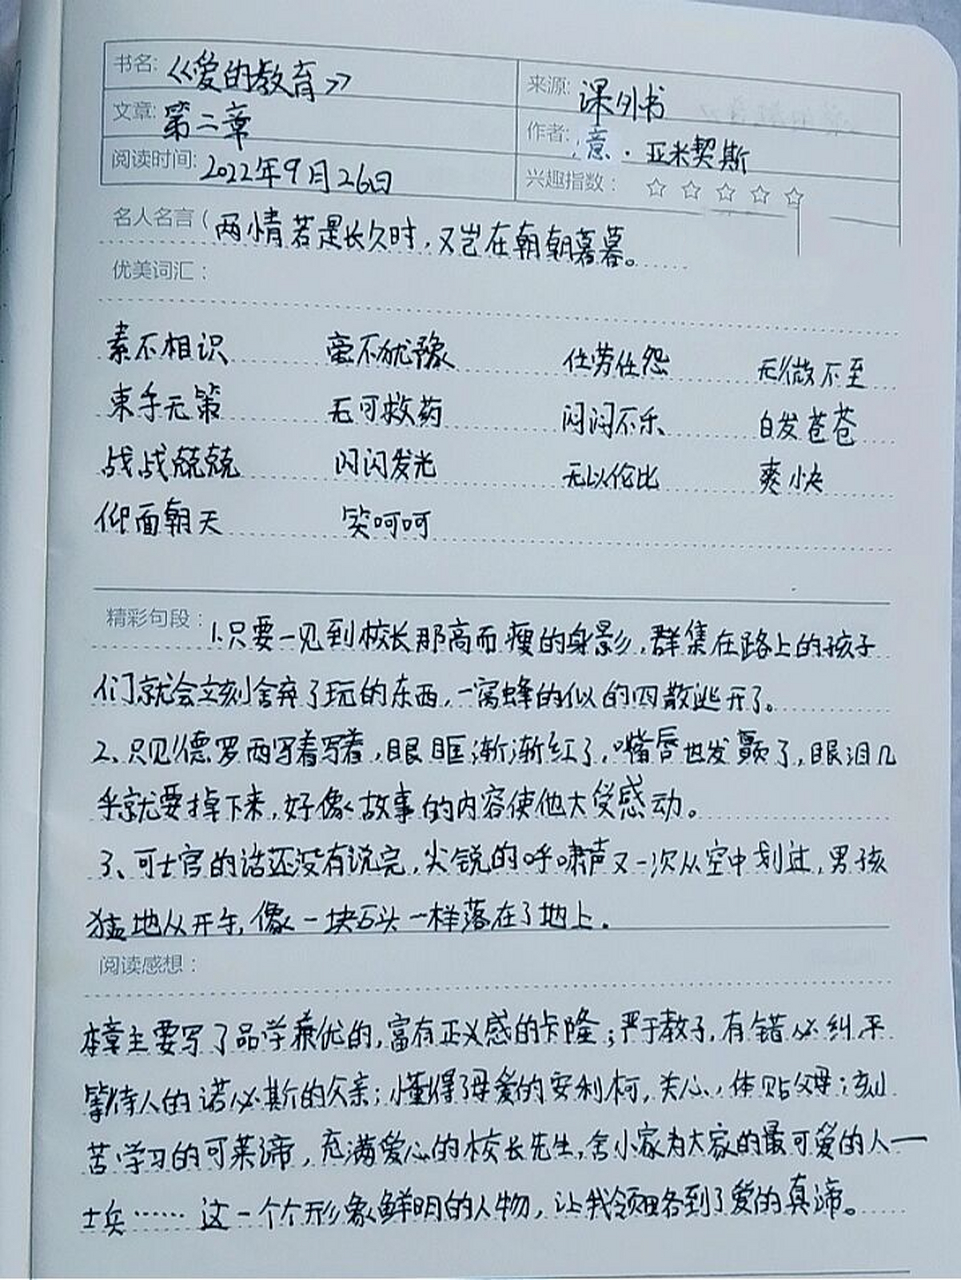 书名:《爱的教育》 来源:课外书
文章:第二章 作者:意·亚米契斯
阅读时间:2022年9月26日 兴趣指数:☆☆☆☆☆
名人名言(两情若是长久时,又岂在朝朝暮暮。
优美词汇:
素不相识 毫不犹豫 任劳任怨 无微不至
束手无策 无可救药 闷闷不乐 白发苍苍
战战兢兢 闪闪发光 无以伦比 爽快
仰面朝天 笑呵呵
精彩句段:1.只要一见到校长那高而瘦的身影,群集在路上的孩子
们就会立刻舍弃了玩的东西,一窝蜂的似的四散逃开了。
2、只见德罗西写着写着,眼眶渐渐红了,嘴唇也发颤了,眼泪几
乎就要掉下来,好像故事的内容使他大受感动。
3、可士官的话还没有说完,尖锐的呼啸声又一次从空中划过,男孩
猛地从开车,像一块石头一样落在了地上.
阅读感想:
本章主要写了品学兼优的,富有正义感的卡隆;严于教子,有错必纠,平
等待人的诺必斯的父亲;懂得了母爱的安利柯,关心,体贴父母;刻
苦学习的可莱谛,充满爱心的校长先生,舍小家为大家的最可爱的人—
士兵……这一个个形象鲜明的人物,让我领略到了爱的真谛。